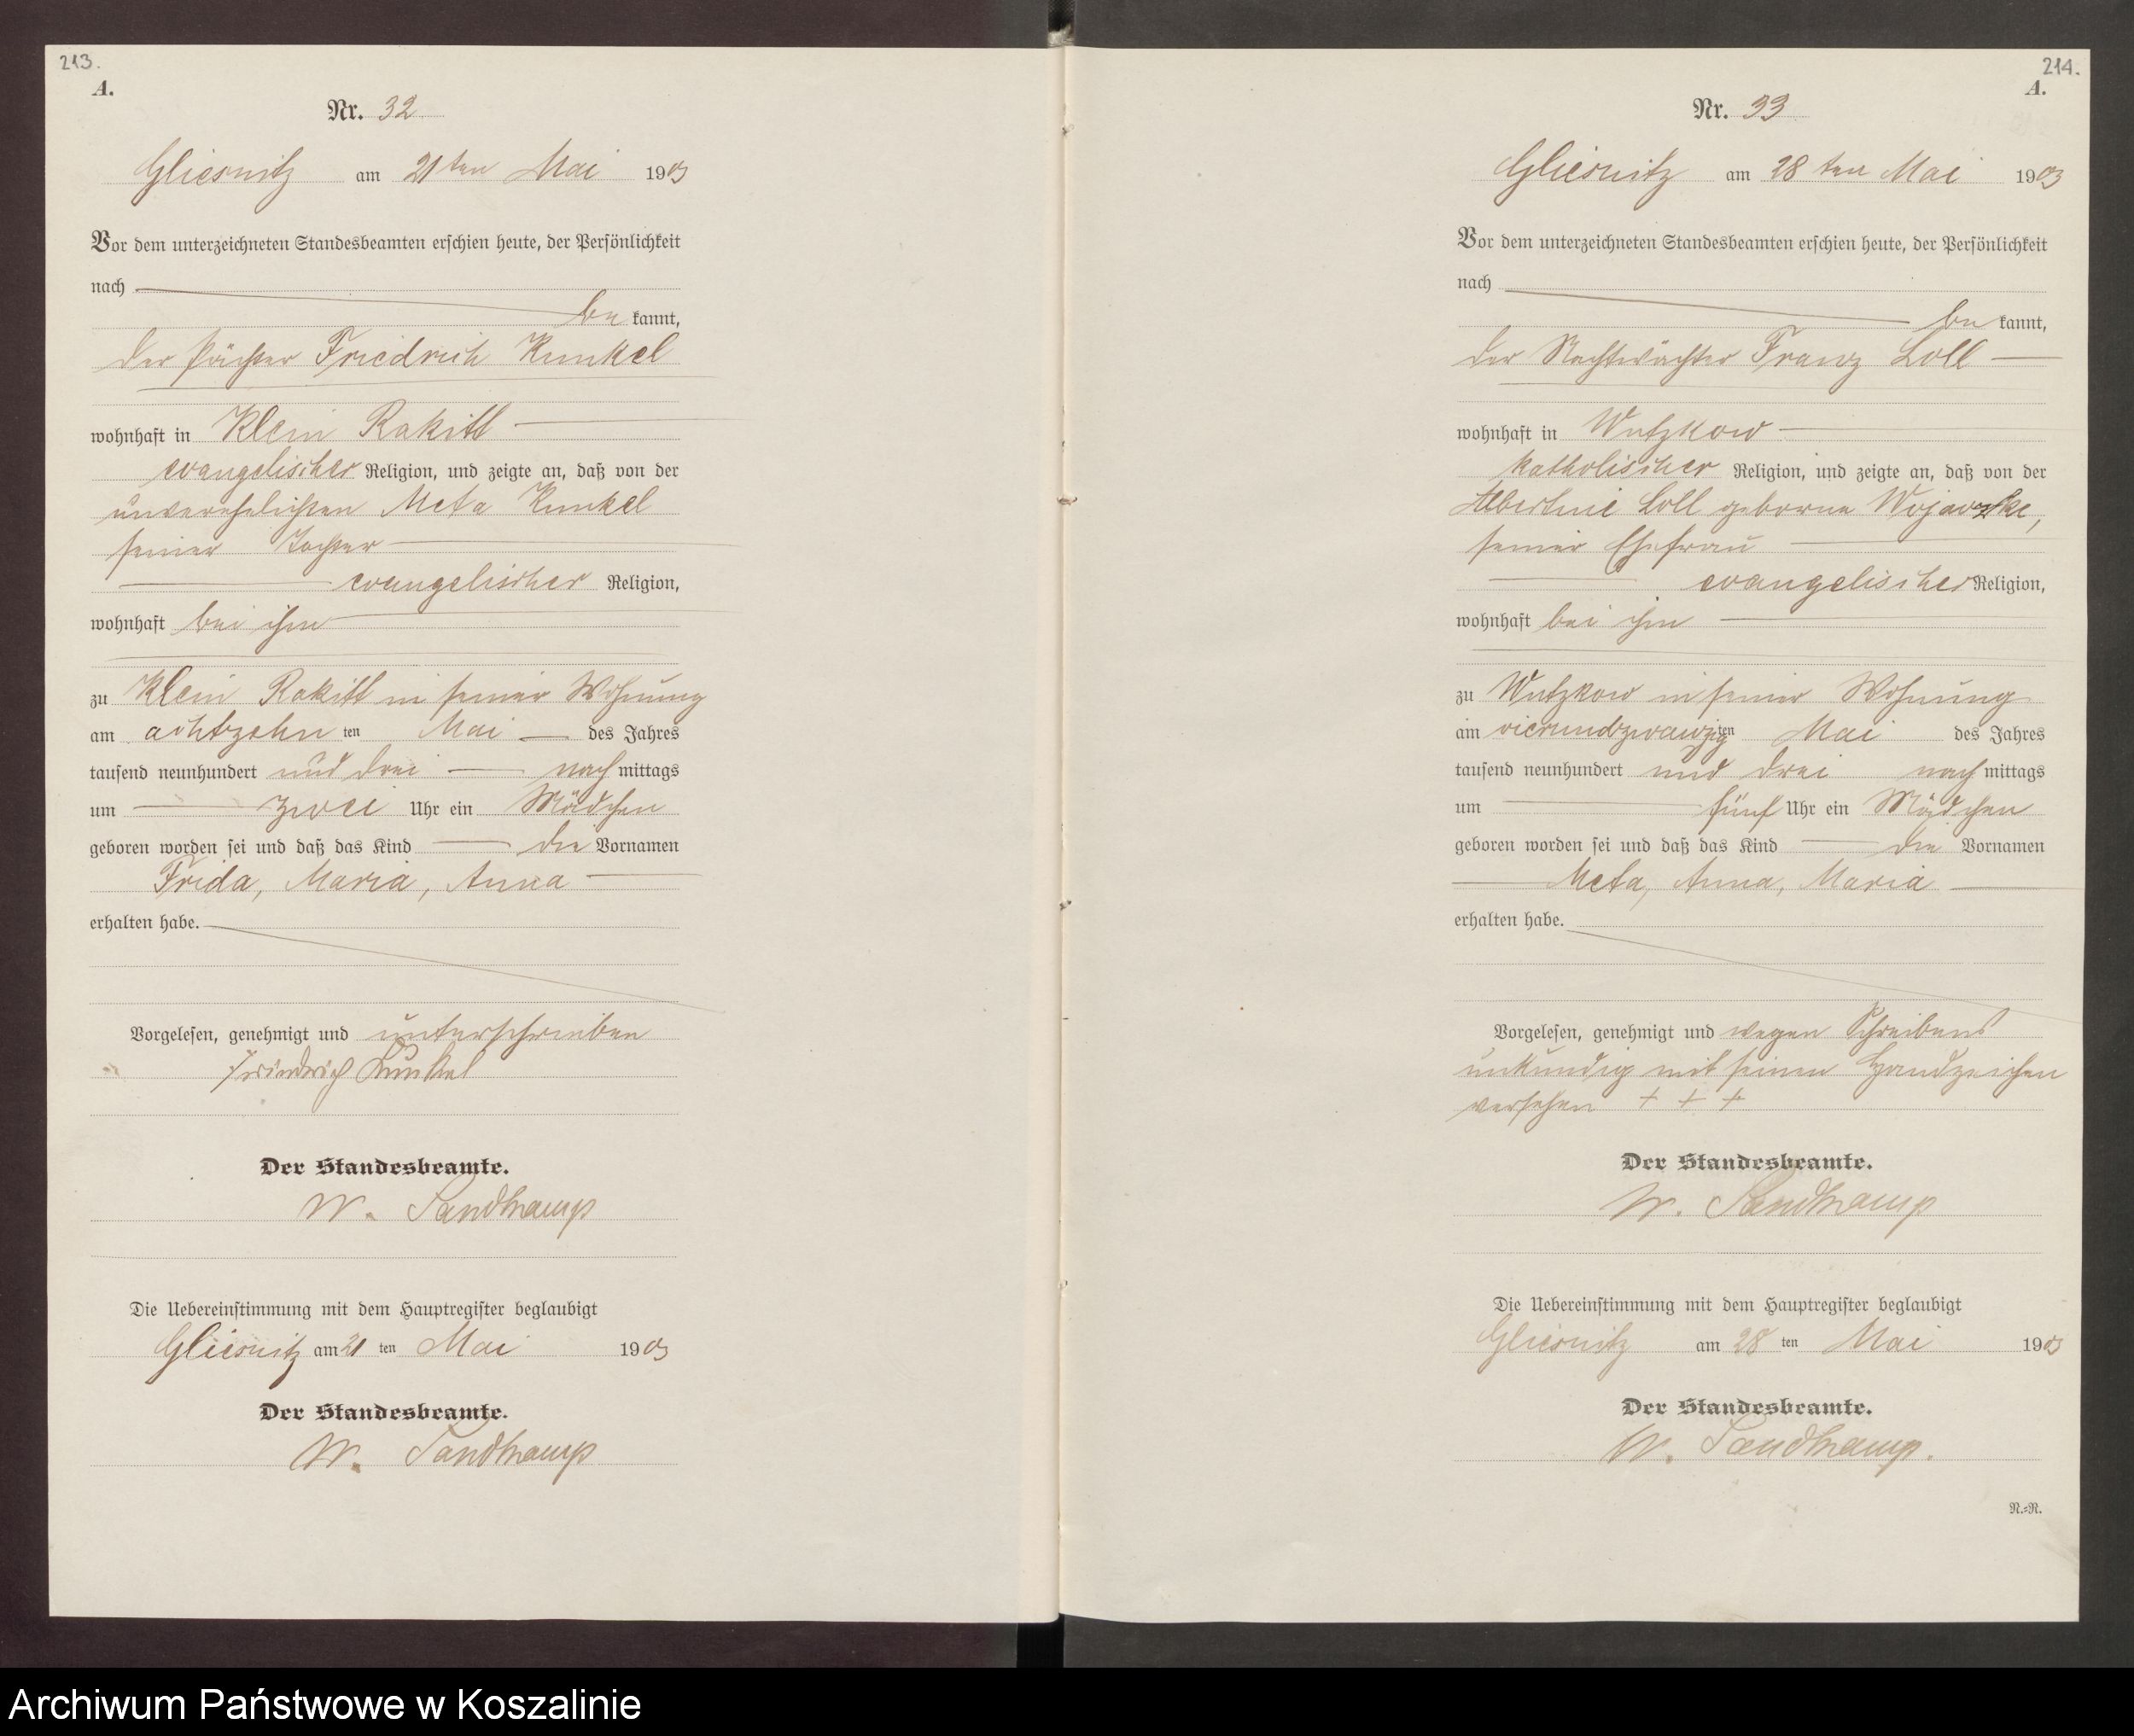 213.
A.
Nr. 32
Gliesnitz am 21ten Mai 1903
Vor dem unterzeichneten Standesbeamten erschien heute, der Persönlichkeit
nach
be kannt,
der Pächter Friedrich Kunkel
wohnhaft in Klein Rakitt
evangelischer Religion, und zeigte an, daß von der
unverehelichten Meta Kunkel
seiner Tochter
evangelischer Religion,
wohnhaft bei ihm
zu Klein Rakitt in seiner Wohnung
am achtzehn ten Mai des Jahres
tausend neunhundert und drei nach mittags
um zwei Uhr ein Mädchen
geboren worden sei und daß das Kind die Vornamen
Frida, Maria, Anna
erhalten habe.
Vorgelesen, genehmigt und unterschrieben
Friedrich Kunkel
Der Standesbeamte.
W. Sandkamp
Die Uebereinstimmung mit dem Hauptregister beglaubigt
Gliesnitz am 21 ten Mai 1903
Der Standesbeamte.
W. Sandkamp
214.
A.
Nr. 33
Gliesnitz am 28 ten Mai 1903
Vor dem unterzeichneten Standesbeamten erschien heute, der Persönlichkeit
nach
be kannt,
der Nachtwächter Franz Loll
wohnhaft in Wutzkow
katholischer Religion, und zeigte an, daß von der
Albertine Loll geborne
seiner Ehefrau
evangelischer Religion,
wohnhaft bei ihm
zu Wutzkow in seiner Wohnung
am vierundzwanzigten Mai des Jahres
tausend neunhundert und drei nach mittags
um fünf Uhr ein Mädchen
geboren worden sei und daß das Kind die Vornamen
Meta, Anna, Maria
erhalten habe.
Vorgelesen, genehmigt und wegen Schreibens
unkundig mit seinen Handzeichen
versehen + + +
Der Standesbeamte.
W. Sandkamp
Die Uebereinstimmung mit dem Hauptregister beglaubigt
Gliesnitz am 28 ten Mai 1903
Der Standesbeamte.
W. Sandkamp.
N.=R.
Archiwum Państwowe w Koszalinie